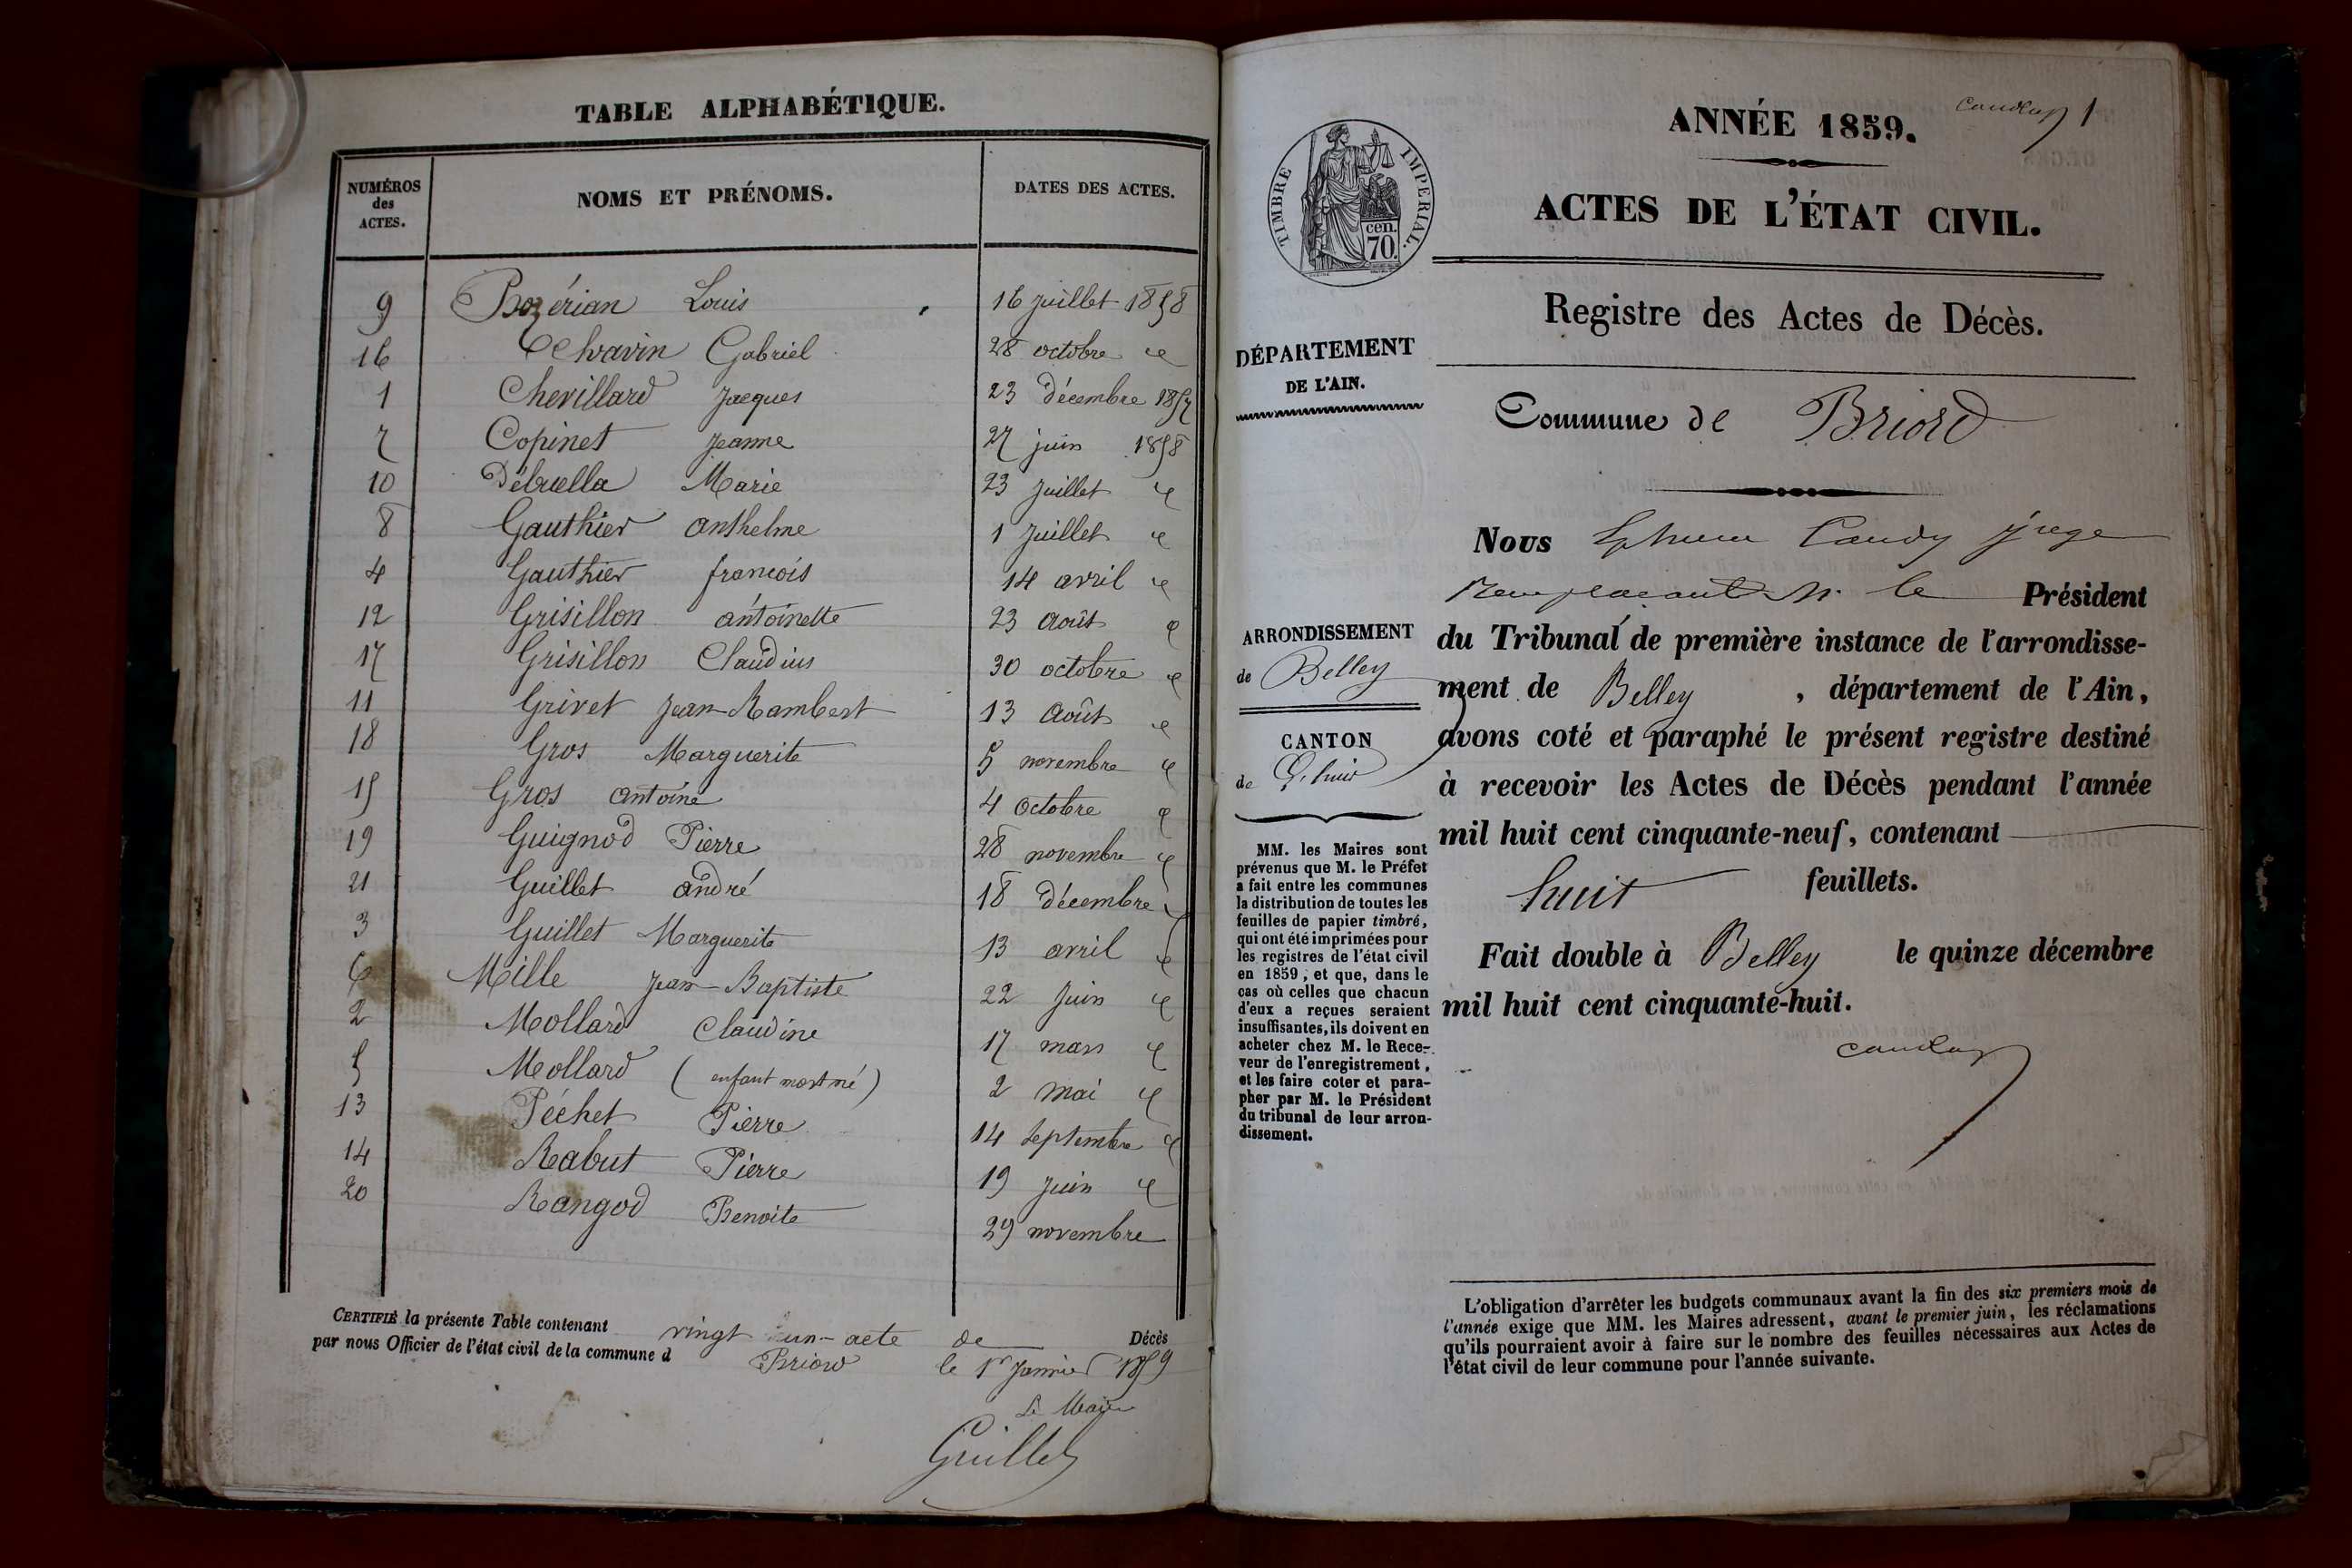 TABLE ALPHABÉTIQUE.
NUMÉROS des ACTES. NOMS ET PRÉNOMS. DATES DES ACTES.
9 Bozérian Louis 16 juillet 1858
16 Chavin Gabriel 28 octobre id
1 Chevillard Jacques 23 décembre 1857
7 Copinet Jeanne 27 juin 1858
10 Marie 23 juillet id
8 Gauthier anthelme 1 juillet id
4 Gauthier francois 14 avril id
12 Grisillon antoinette 23 août id
17 Grisillon Claudius 30 octobre id
11 Grivet Jean-Rambert 13 août id
18 Gros Marguerite 5 novembre id
15 Gros antoine 4 octobre id
19 Guignod Pierre 28 novembre id
21 Guillet andré 18 décembre id
3 Guillet Marguerite 13 avril id
6 Mille Jean-Baptiste 22 juin id
2 Mollard Claudine 17 mars id
5 Mollard (enfant mort né) 2 mai id
13 Péchet Pierre 14 septembre id
14 Rabut Pierre 19 juin id
20 Rangod Benoite 29 novembre
CERTIFIÉ la présente Table contenant vingt un acte de Décès
par nous Officier de l'état civil de la commune d Briord le 1er Janvier 1859
Le Maire
Guillet
1
ANNÉE 1859.
ACTES DE L'ÉTAT CIVIL.
TIMBRE IMPERIAL.
cen.
70.
Registre des Actes de Décès.
DÉPARTEMENT
DE L'AIN.
Commune de Briord
Nous Candy juge
remplaçant M. le Président
ARRONDISSEMENT
de Belley
du Tribunal de première instance de l'arrondisse-
ment de Belley, département de l'Ain,
avons coté et paraphé le présent registre destiné
à recevoir les Actes de Décès pendant l'année
mil huit cent cinquante-neuf, contenant
huit feuillets.
Fait double à Belley le quinze décembre
mil huit cent cinquante-huit.
CANTON
de
MM. les Maires sont
prévenus que M. le Préfet
a fait entre les communes
la distribution de toutes les
feuilles de papier timbré,
qui ont été imprimées pour
les registres de l'état civil
en 1859, et que, dans le
cas où celles que chacun
d'eux a reçues seraient
insuffisantes, ils doivent en
acheter chez M. le Rece-
veur de l'enregistrement,
et les faire coter et para-
pher par M. le Président
du tribunal de leur arron-
dissement.
L'obligation d'arrêter les budgets communaux avant la fin des six premiers mois de
l'année exige que MM. les Maires adressent, avant le premier juin, les réclamations
qu'ils pourraient avoir à faire sur le nombre des feuilles nécessaires aux Actes de
l'état civil de leur commune pour l'année suivante.